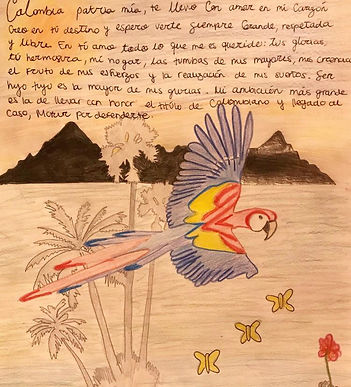 Colombia patria mía, te llevo Con amor en mi Corazón
Creo en tú destino y espero verte siempre Grande, respetada
y libre. En tí amo todo lo que me es querido: tus glorias,
tú hermosura, mí hogar, las tumbas de mis mayores, mis creencias
el fruto de mis esfuerzos y la realización de mis sueños. Ser
hijo tuyo es la mayor de mis glorias. Mi ambición más grande
es la de llevar con honor el título de Colombiano y llegado al
Caso, Morir por defenderte.